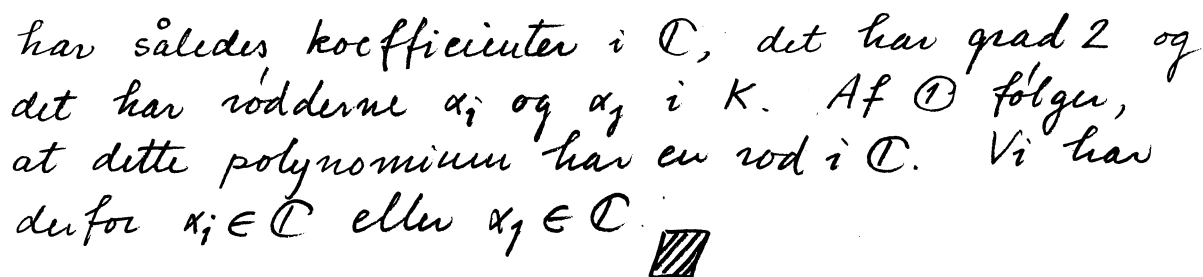 har således koefficienter i ℂ, det har grad 2 og
det har rødderne αᵢ og αⱼ i K. Af ① følger,
at dette polynomium har en rod i ℂ. Vi har
derfor αᵢ ∈ ℂ eller αⱼ ∈ ℂ.